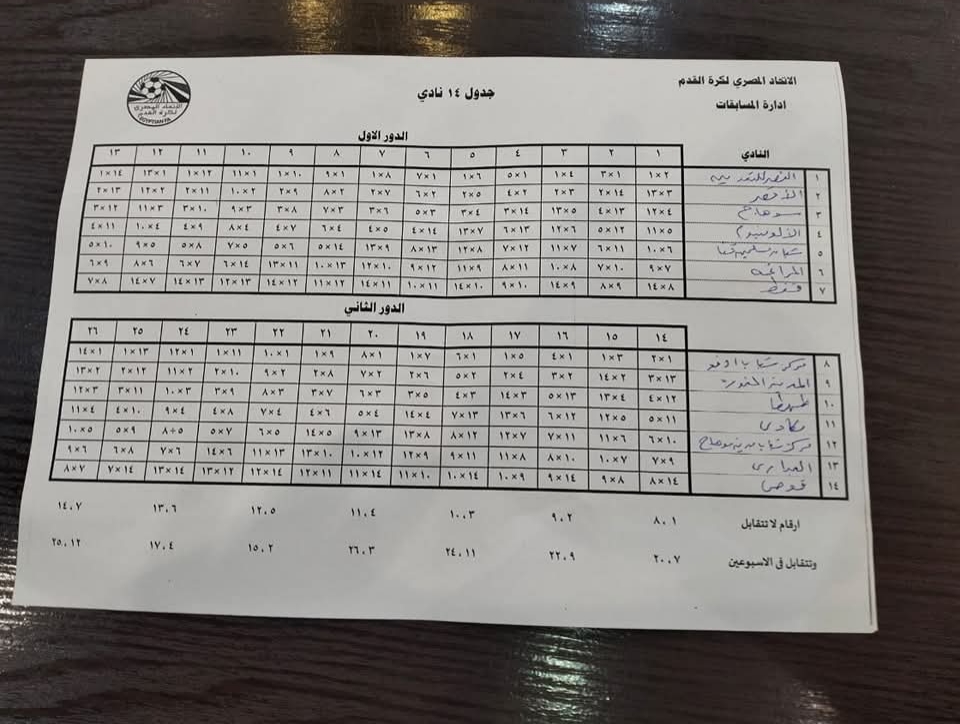 الاتحاد المصري لكرة القدم
ادارة المسابقات
جدول ١٤ نادي
الاتحاد المصري
لكرة القدم
EGYPTIAN FA
الدور الاول
النادي ١ ٢ ٣ ٤ ٥ ٦ ٧ ٨ ٩ ١٠ ١١ ١٢ ١٣
١ ١×٢ ٣×١ ١×٤ ٥×١ ١×٦ ٧×١ ١×٨ ٩×١ ١×١٠ ١١×١ ١×١٢ ١٣×١ ١×١٤
٢ الأقصر ١٣×٣ ١٤×٢ ٢×٣ ٤×٢ ٢×٥ ٦×٢ ٢×٧ ٨×٢ ٢×٩ ١٠×٢ ٢×١١ ١٢×٢ ٢×١٣
٣ سوهاج ١٢×٤ ٤×١٣ ١٣×٥ ١٤×٣ ٣×٤ ٥×٣ ٣×٦ ٧×٣ ٣×٨ ٩×٣ ٣×١٠ ١١×٣ ٣×١٢
٤ الألومنيوم ١١×٥ ٥×١٢ ١٢×٦ ٦×١٣ ١٣×٧ ١٤×٤ ٤×٥ ٦×٤ ٤×٧ ٨×٤ ٤×٩ ١٠×٤ ٤×١١
٥ شبان مسلمين قنا ١٠×٦ ٦×١١ ١١×٧ ٧×١٢ ١٢×٨ ٨×١٣ ١٣×٩ ١٤×٥ ٥×٦ ٧×٥ ٥×٨ ٩×٥ ٥×١٠
٦ المراغه ٩×٧ ٧×١٠ ١٠×٨ ٨×١١ ١١×٩ ٩×١٢ ١٢×١٠ ١٠×١٣ ١٣×١١ ١٤×٦ ٦×٧ ٨×٦ ٦×٩
٧ قفط ٨×١٤ ٩×٨ ١٤×٩ ١٠×٩ ١٤×١٠ ١١×١٠ ١٤×١١ ١٢×١١ ١٤×١٢ ١٣×١٢ ١٤×١٣ ٧×١٤ ٨×٧
الدور الثاني
١٤ ١٥ ١٦ ١٧ ١٨ ١٩ ٢٠ ٢١ ٢٢ ٢٣ ٢٤ ٢٥ ٢٦
٨ مركز شباب ادفو ٢×١ ١×٣ ٤×١ ١×٥ ٦×١ ١×٧ ٨×١ ١×٩ ١٠×١ ١×١١ ١٢×١ ١×١٣ ١٤×١
٩ المدينة المنورة ٣×١٣ ٢×١٤ ٣×٢ ٢×٤ ٥×٢ ٢×٦ ٧×٢ ٢×٨ ٩×٢ ٢×١٠ ١١×٢ ٢×١٢ ١٣×٢
١٠ طهطا ٤×١٢ ١٣×٤ ٥×١٣ ٣×١٤ ٤×٣ ٣×٥ ٦×٣ ٣×٧ ٨×٣ ٣×٩ ١٠×٣ ٣×١١ ١٢×٣
١١ ٥×١١ ١٢×٥ ٦×١٢ ١٣×٦ ٧×١٣ ٤×١٤ ٥×٤ ٤×٦ ٧×٤ ٤×٨ ٩×٤ ٤×١٠ ١١×٤
١٢ مركز شباب مدينة سوهاج ٦×١٠ ١١×٦ ٧×١١ ١٢×٧ ٨×١٢ ١٣×٨ ٩×١٣ ٥×١٤ ٦×٥ ٥×٧ ٨÷٥ ٥×٩ ١٠×٥
١٣ ٧×٩ ١٠×٧ ٨×١٠ ١١×٨ ٩×١١ ١٢×٩ ١٠×١٢ ١٣×١٠ ١١×١٣ ٦×١٤ ٧×٦ ٦×٨ ٩×٦
١٤ قوص ١٤×٨ ٨×٩ ٩×١٤ ٩×١٠ ١٠×١٤ ١٠×١١ ١١×١٤ ١١×١٢ ١٢×١٤ ١٢×١٣ ١٣×١٤ ١٤×٧ ٧×٨
ارقام لا تتقابل ٨،١ ٩،٢ ١٠،٣ ١١،٤ ١٢،٥ ١٣،٦ ١٤،٧
وتتقابل فى الاسبوعين ٢٠،٧ ٢٢،٩ ٢٤،١١ ٢٦،٣ ١٥،٢ ١٧،٤ ٢٥،١٢